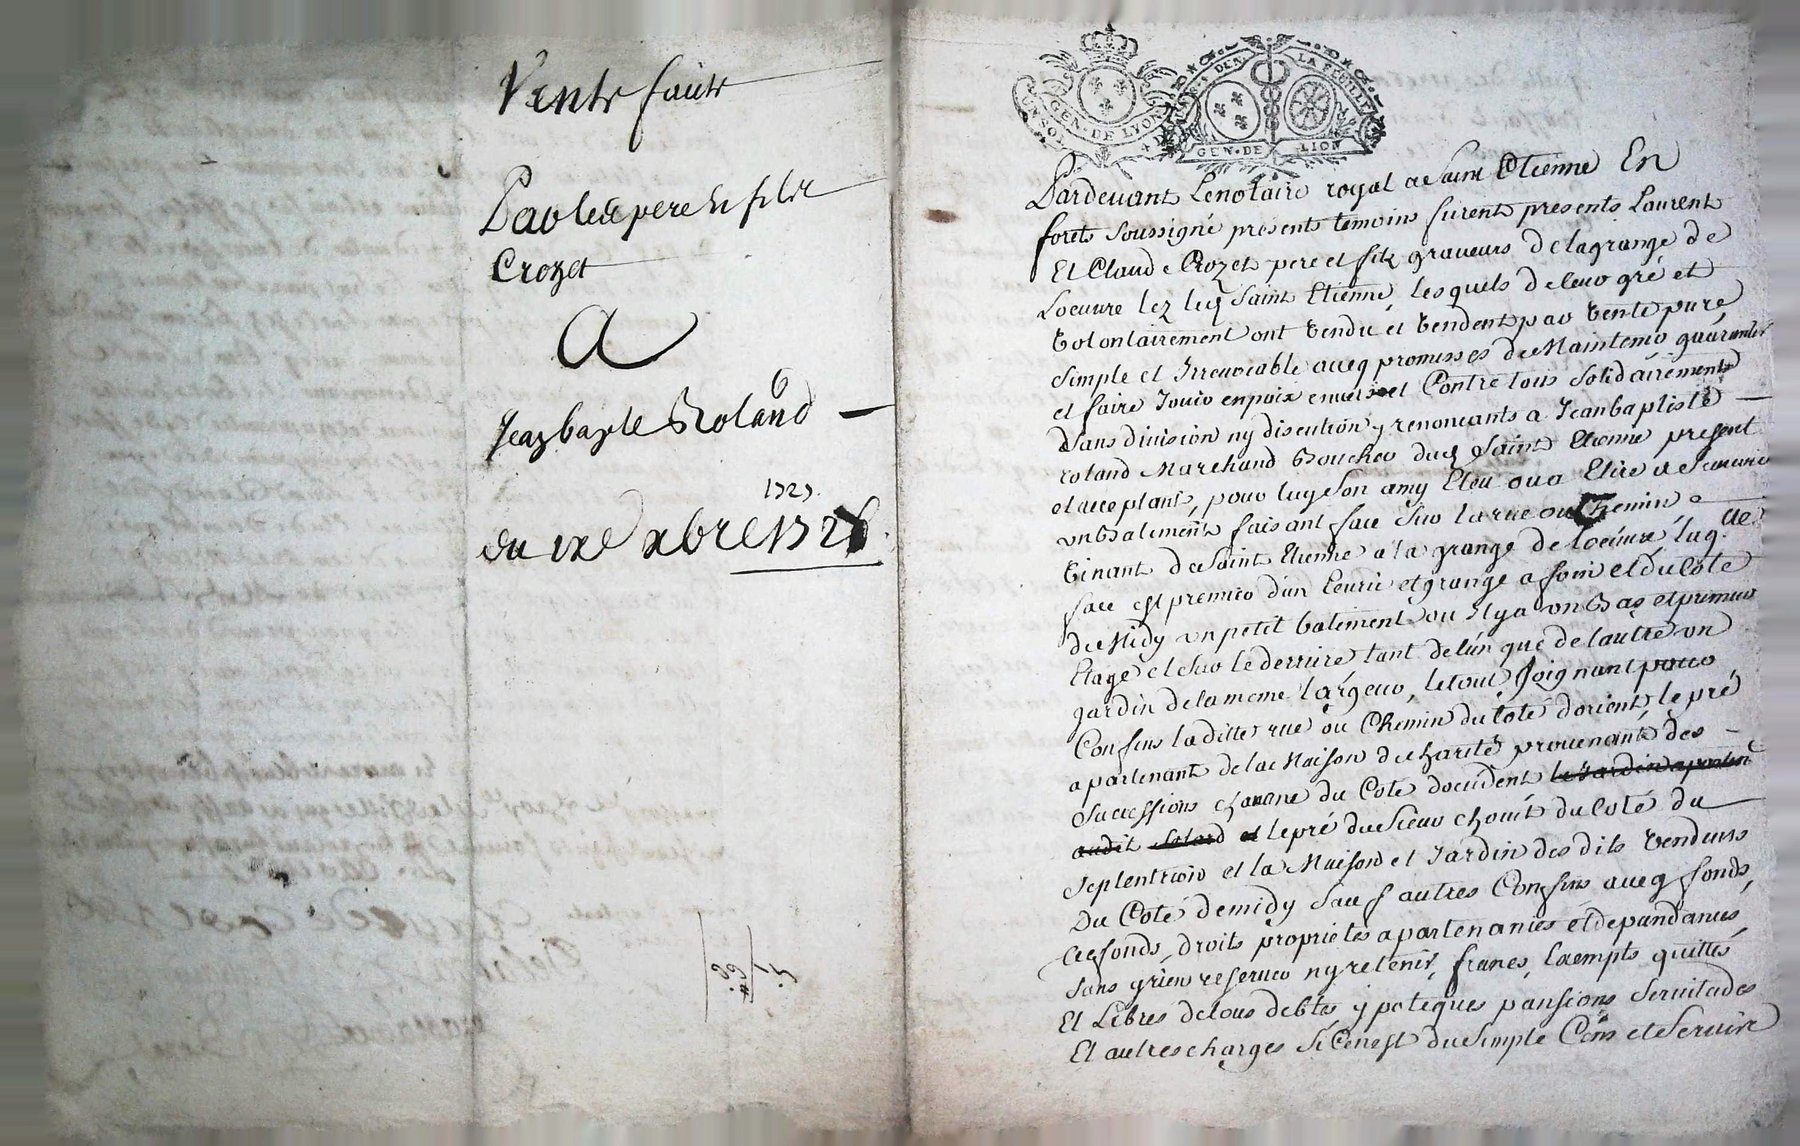 Vente faite
Par les père et fils
Crozet
A
6
Jeanbaptte Roland
1727.
du IXe xbre 1726
GEN. DE LYON
UN SOL
LA FEUILLE
GEN. DE LION
Pardevant Lenotaire royal de Saint Etienne En
forets Soussigné présents temoins furents presents Laurent
Et Claude Crozet pere et fils graveurs de lagrange de
Loeuvre lez led Saint Etienne, lesquels de leur gré et
Volontairement ont Vendu et Vendent par Vente pure,
Simple et Irrevocable avecq promesses de Maintenir guarantir
et faire Jouir enpaix envers et Contre tous Solidairement
Sans division ny discution y renonceants a Jeanbaptiste
roland Marchand Boucher dud Saint Etienne present
et acceptant, pour luy Son amy Eleu ou a Elire
un Batiment faisant face Sur larue ou Chemin
tinant de Saint Etienne a la grange de Loeuvre, laq.lle
face est premier d'un Ecurie et grange a foin et du Coté
de Midy un petit batiment ou Il y a un Bas et premier
Etage et Sur le derriere tant de l'un que de l'autre un
jardin de la meme largeur, le tout Joignant pour
Confins la ditte rue ou Chemin du Coté d'orient, le pré
apartenant de la Maison de charité provenant des
Successions chanone du Coté doccident le Jardin apartent
audit Rolard et le pré du Sieur chouit du Coté du
Septentrion et la Maison et Jardin des dits Vendeurs
Du Coté de midy Sauf autres Confins avecq fonds,
tresfonds, droits proprietés apartenances et dependances,
Sans y rien reserver ny retenir, francs, Exempts quittes
Et Libres de tous debtes ypoteques pansions Servitudes
Et autres charges Si Cenest du Simple Cens et Servire